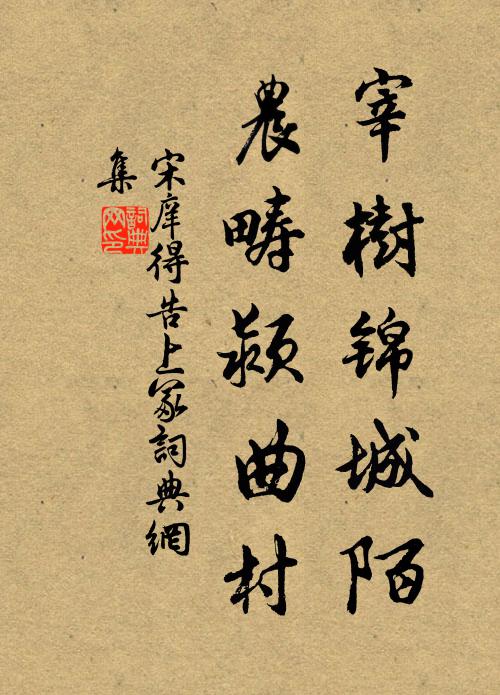 宰樹錦城陌
農疇潁曲村
宋庠得告上冢詞典網
集
詞典
网印